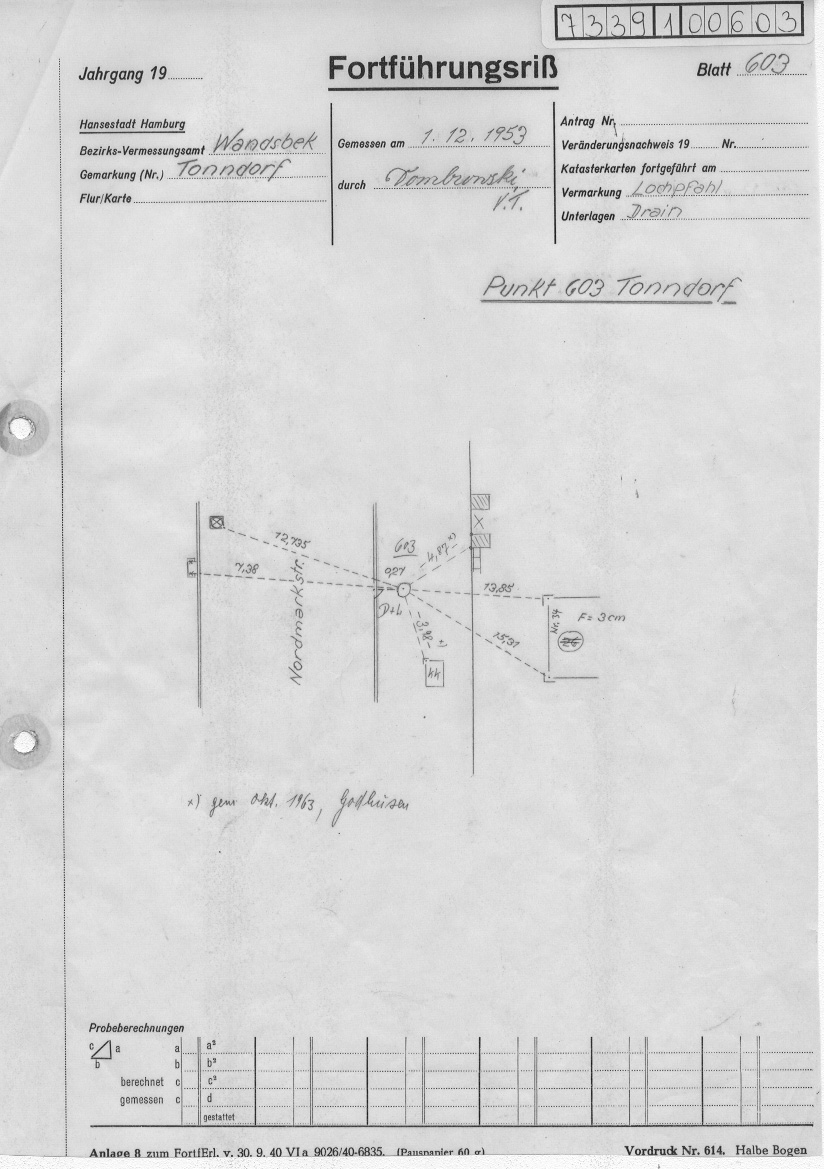 7339100603
Jahrgang 19
Fortführungsriß
Blatt 603
Hansestadt Hamburg
Bezirks-Vermessungsamt Wandsbek
Gemarkung (Nr.) Tonndorf
Flur/Karte
Gemessen am 1. 12. 1953
durch Dombrowski,
V.T.
Antrag Nr.
Veränderungsnachweis 19 Nr.
Katasterkarten fortgeführt am
Vermarkung Lochpfahl
Unterlagen Drain
Punkt 603 Tonndorf
12,735
603
4,87 x)
7,38
0,21
13,85
D+L
Nordmarkstr.
3,98 x)
15,31
Nr. 34
F = 3cm
26
KK
x) gem Okt. 1963,
Probeberechnungen
c a b
a a²
b b²
berechnet c c²
gemessen c d
gestattet
Anlage 8 zum FortfErl. v. 30. 9. 40 VI a 9026/40-6835. (Pauspapier 60 g)
Vordruck Nr. 614. Halbe Bogen